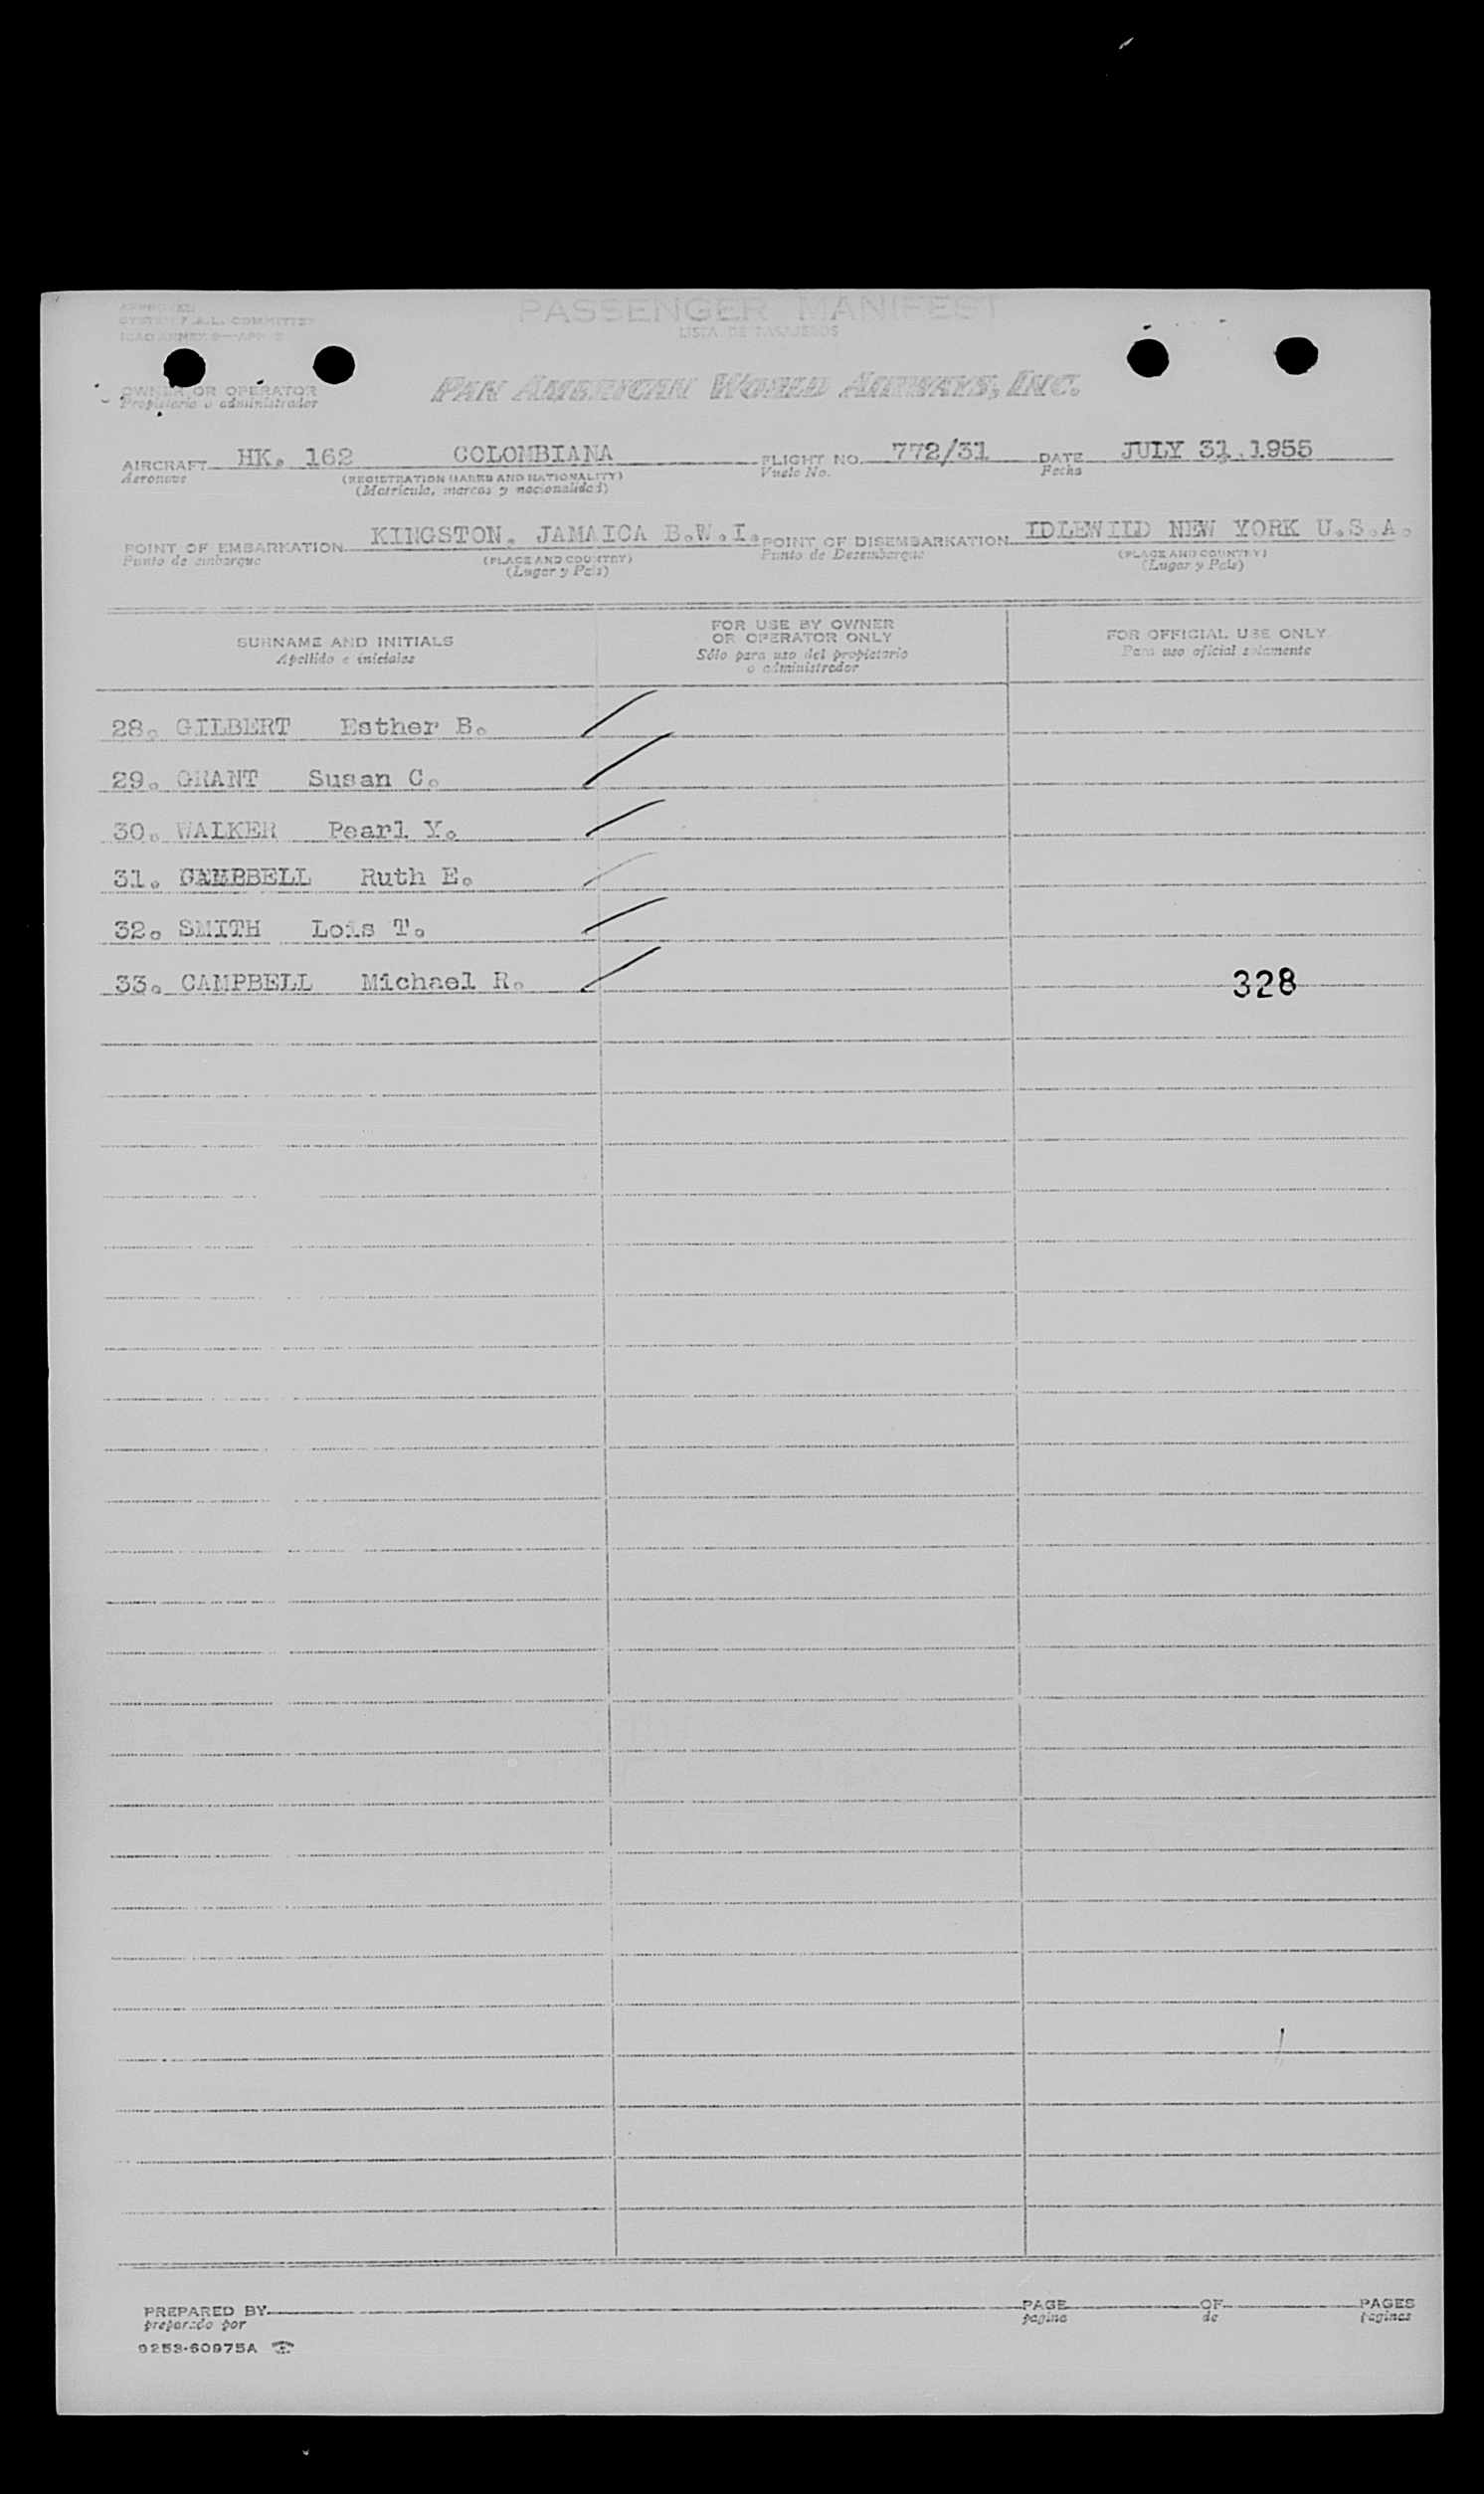 PASSENGER MANIFEST
LISTA DE PASAJEROS
SYSTEM F.A.L. COMMITTEE
ICAO ANNEX 9
OWNER OR OPERATOR
Propietario o administrador
PAN AMERICAN WORLD AIRWAYS, INC.
AIRCRAFT HK. 162 COLOMBIANA FLIGHT NO. 772/31 DATE JULY 31.1955
Aeronave (REGISTRATION MARKS AND NATIONALITY) Vuelo No. Fecha
(Matrícula, marcas y nacionalidad)
POINT OF EMBARKATION KINGSTON. JAMAICA B.W.I. POINT OF DISEMBARKATION IDLEWIID NEW YORK U.S.A.
Punto de embarque (PLACE AND COUNTRY) Punto de Desembarque (PLACE AND COUNTRY)
(Lugar y País) (Lugar y País)
SURNAME AND INITIALS FOR USE BY OWNER OR OPERATOR ONLY FOR OFFICIAL USE ONLY
Apellido e iniciales Sólo para uso del propietario o administrador Para uso oficial solamente
28. GILBERT Esther B.
29. GRANT Susan C.
30. WALKER Pearl Y.
31. CAMPBELL Ruth E.
32. SMITH Lois T.
33. CAMPBELL Michael R. 328
PREPARED BY PAGE OF PAGES
preparado por pagina de paginas
9253-60975A